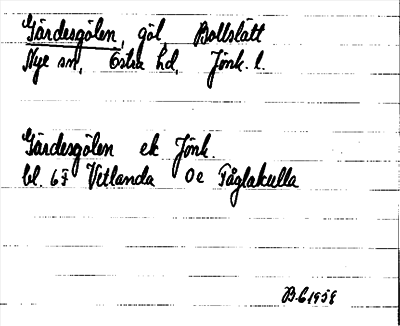 Gärdesgölen, göl, Bollslätt
Nye sn, Östra hd, Jönk. l.
Gärdesgölen ek Jönk.
bl. 6F Vetlanda 0e Fåglakulla
B.G 1958